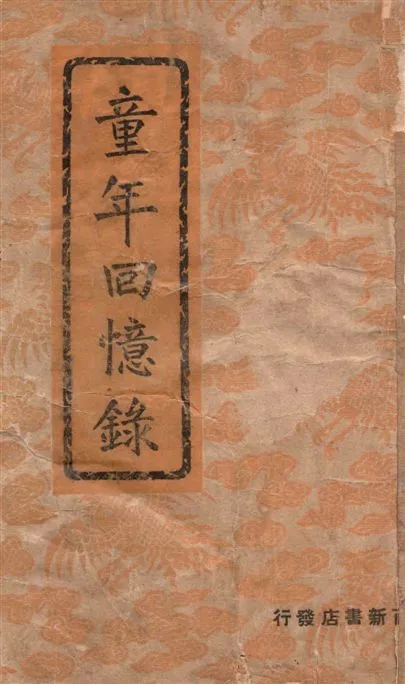 童年回憶錄
新書店發行